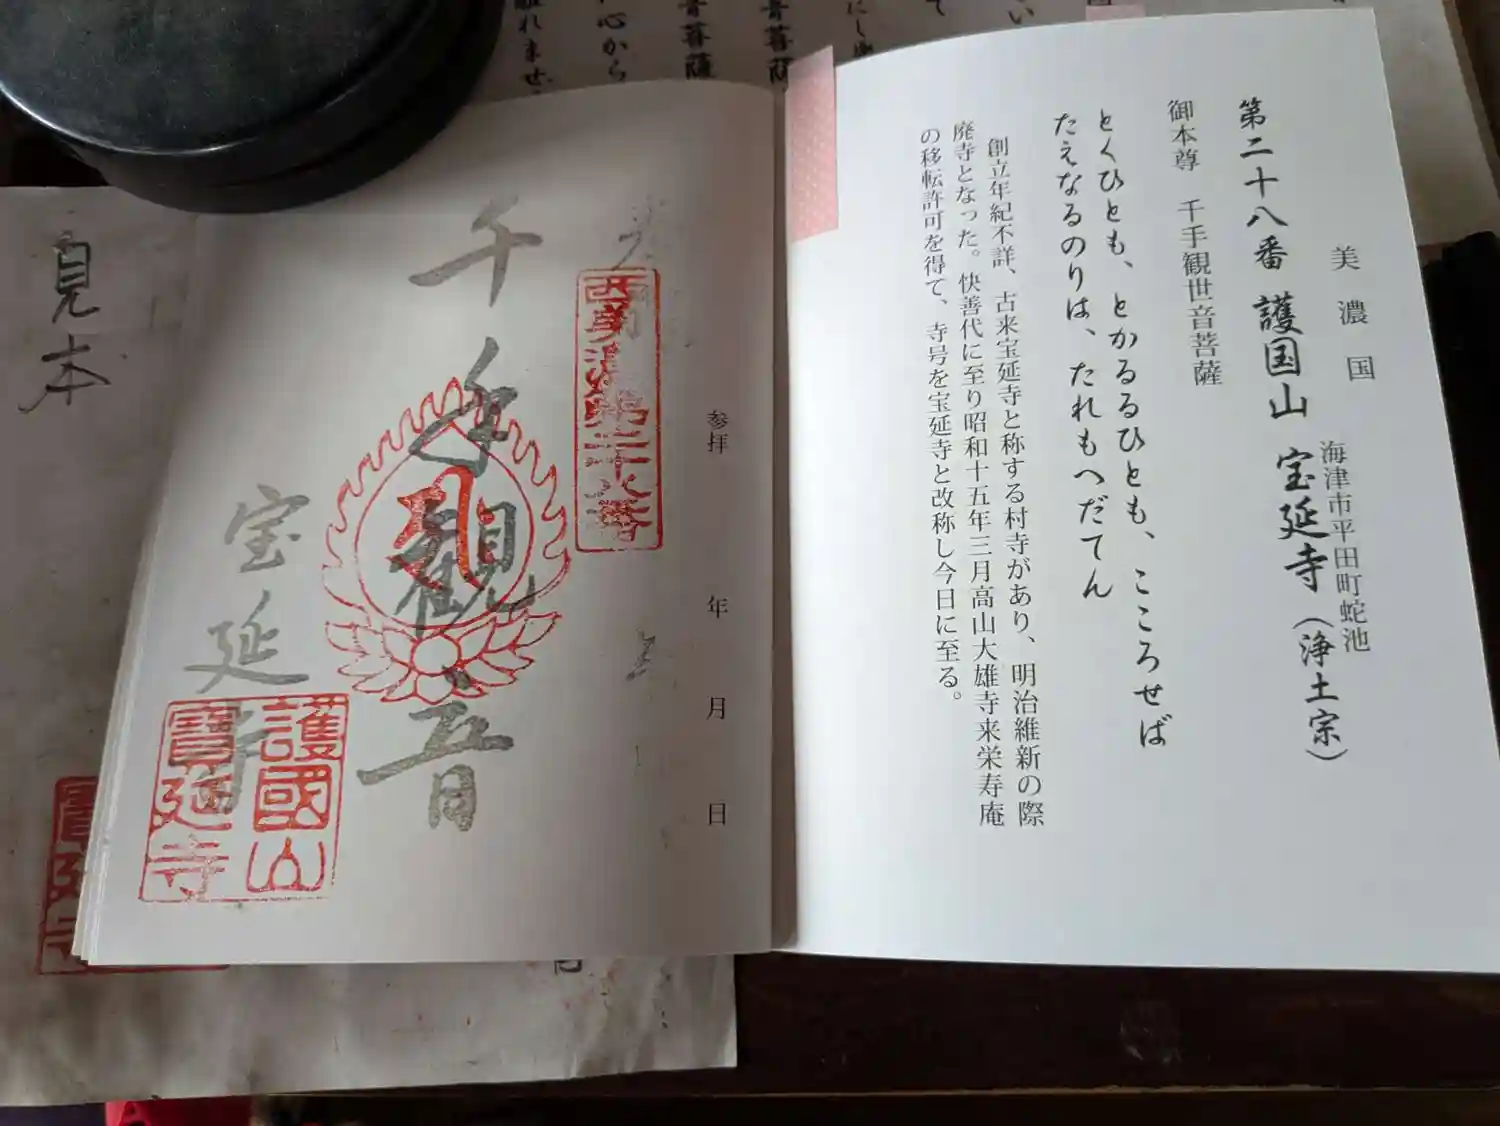 美濃国
海津市平田町蛇池
第二十八番 護国山 宝延寺(浄土宗)
御本尊 千手観世音菩薩
とくひとも、とかるるひとも、こころせば
たえなるのりは、たれもへだてん
創立年紀不詳、古来宝延寺と称する村寺があり、明治維新の際
廃寺となった。快善代に至り昭和十五年三月高山大雄寺来栄寿庵
の移転許可を得て、寺号を宝延寺と改称し今日に至る。
参拝 年 月 日
西美濃第二十八番
千手観音
宝延寺
護國山
寳延寺
見本
心から
音菩薩
音菩薩